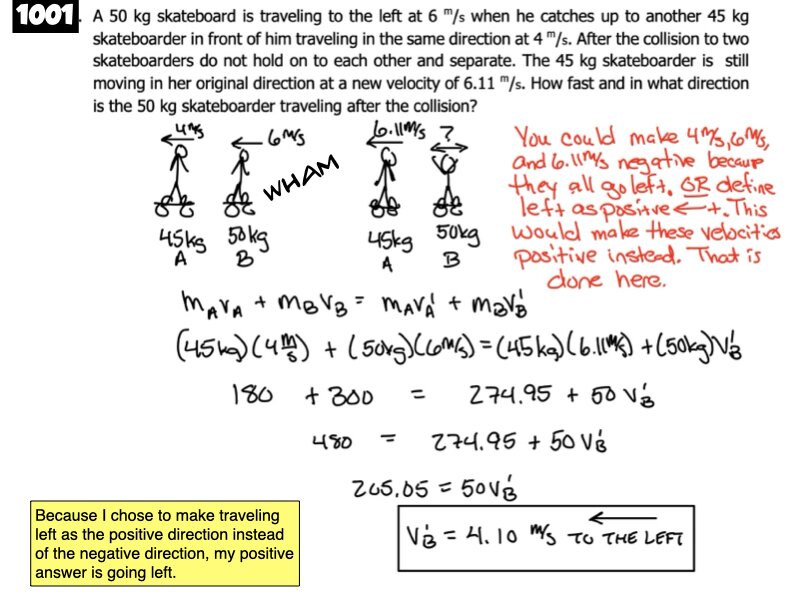 1001. A 50 kg skateboard is traveling to the left at 6 m/s when he catches up to another 45 kg
skateboarder in front of him traveling in the same direction at 4 m/s. After the collision to two
skateboarders do not hold on to each other and separate. The 45 kg skateboarder is still
moving in her original direction at a new velocity of 6.11 m/s. How fast and in what direction
is the 50 kg skateboarder traveling after the collision?
4 m/s 6 m/s 6.11 m/s ?
WHAM
45kg 50kg 45kg 50kg
A B A B
You could make 4 m/s, 6 m/s,
and 6.11 m/s negative because
they all go left, OR define
left as positive ← +. This
would make these velocities
positive instead. That is
done here.
mAvA + mBvB = mAvA' + mBvB'
(45kg)(4 m/s) + (50kg)(6 m/s) = (45kg)(6.11 m/s) + (50kg)vB'
180 + 300 = 274.95 + 50 vB'
480 = 274.95 + 50 vB'
205.05 = 50vB'
vB' = 4.10 m/s TO THE LEFT
Because I chose to make traveling
left as the positive direction instead
of the negative direction, my positive
answer is going left.